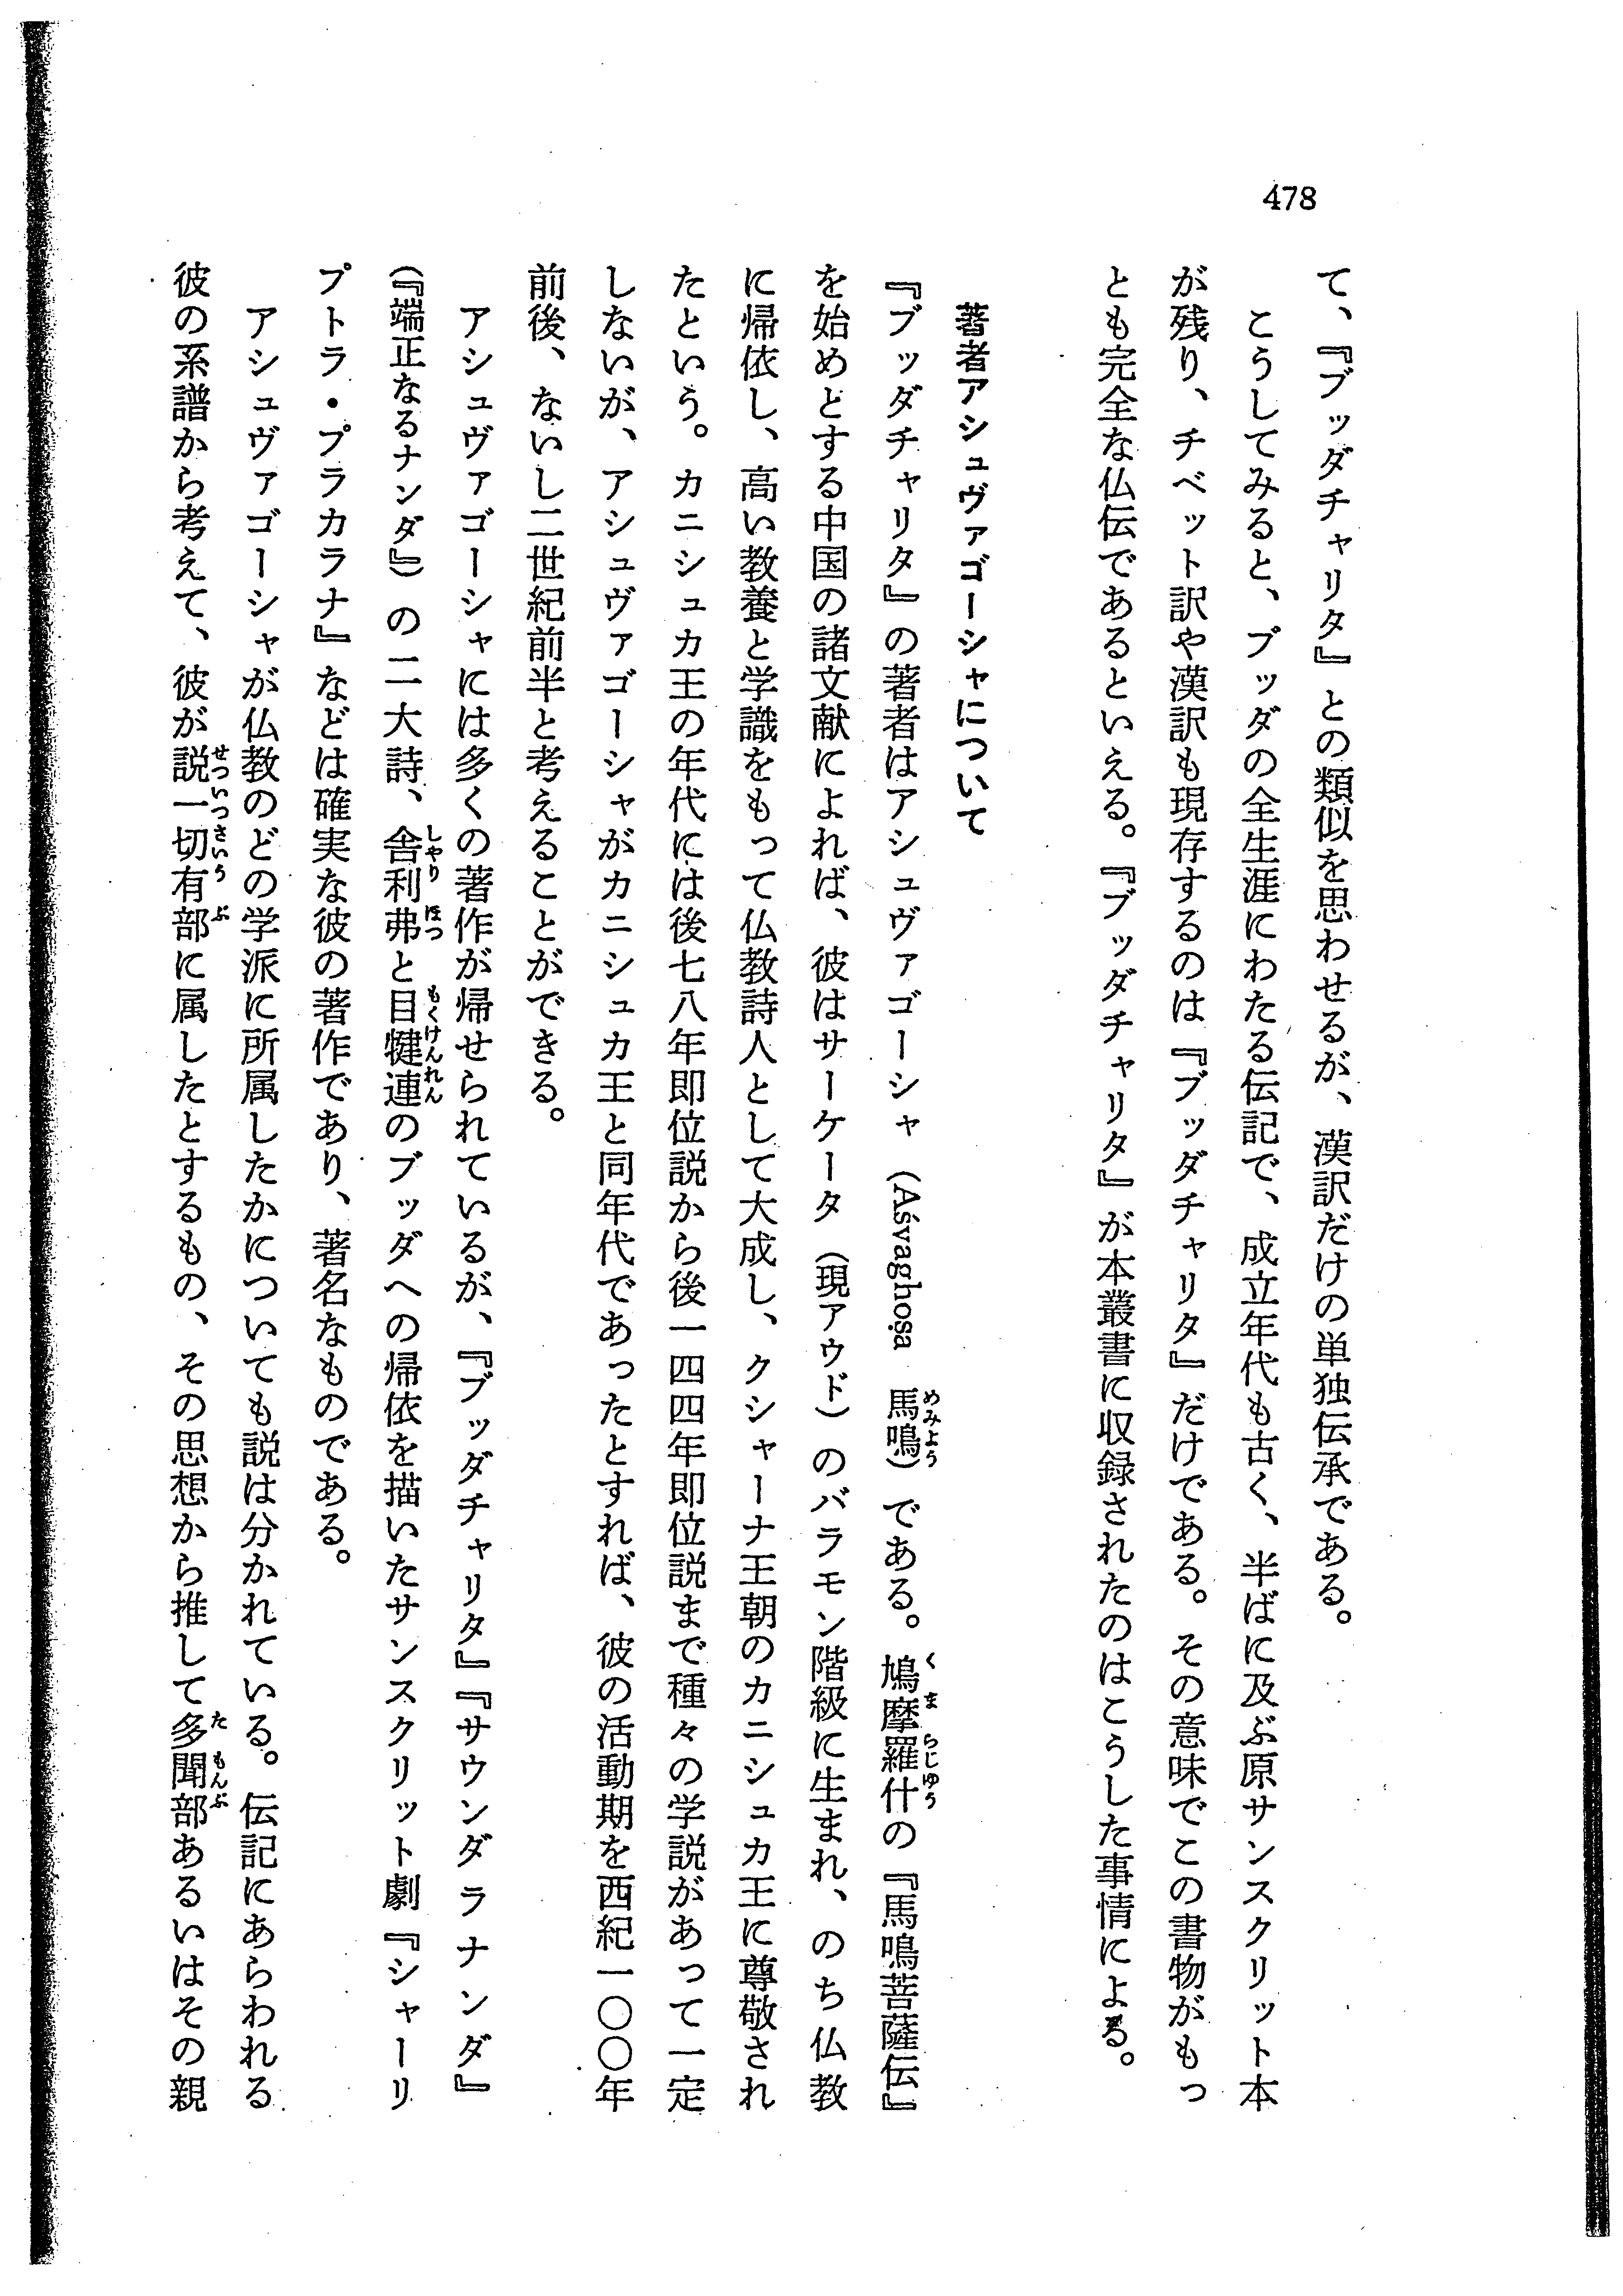 478
て、『ブッダチャリタ』との類似を思わせるが、漢訳だけの単独伝承である。
こうしてみると、ブッダの全生涯にわたる伝記で、成立年代も古く、半ばに及ぶ原サンスクリット本
が残り、チベット訳や漢訳も現存するのは『ブッダチャリタ』だけである。その意味でこの書物がもっ
とも完全な仏伝であるといえる。『ブッダチャリタ』が本叢書に収録されたのはこうした事情による。
著者アシュヴァゴーシャについて
『ブッダチャリタ』の著者はアシュヴァゴーシャ（Aśvaghoṣa 馬鳴）である。鳩摩羅什の『馬鳴菩薩伝』
を始めとする中国の諸文献によれば、彼はサーケータ（現アウド）のバラモン階級に生まれ、のち仏教
に帰依し、高い教養と学識をもって仏教詩人として大成し、クシャーナ王朝のカニシュカ王に尊敬され
たという。カニシュカ王の年代には後七八年即位説から後一四四年即位説まで種々の学説があって一定
しないが、アシュヴァゴーシャがカニシュカ王と同年代であったとすれば、彼の活動期を西紀一〇〇年
前後、ないし二世紀前半と考えることができる。
アシュヴァゴーシャには多くの著作が帰せられているが、『ブッダチャリタ』『サウンダラナンダ』
（『端正なるナンダ』）の二大詩、舎利弗と目犍連のブッダへの帰依を描いたサンスクリット劇『シャーリ
プトラ・プラカラナ』などは確実な彼の著作であり、著名なものである。
アシュヴァゴーシャが仏教のどの学派に所属したかについても説は分かれている。伝記にあらわれる
彼の系譜から考えて、彼が説一切有部に属したとするもの、その思想から推して多聞部あるいはその親